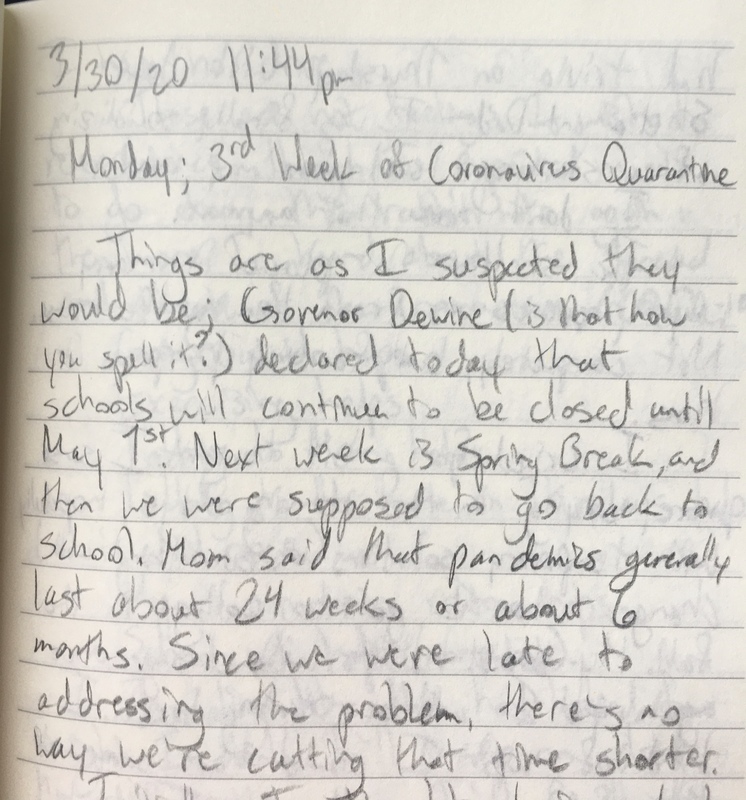 3/30/20 11:44pm
Monday; 3rd Week of Coronavirus Quarantine
Things are as I suspected they
would be; Governor Dewine (is that how
you spell it?) declared today that
schools will continue to be closed until
May 1st. Next week is Spring Break, and
then we were supposed to go back to
school. Mom said that pandemics generally
last about 24 weeks or about 6
months. Since we were late to
addressing the problem, there's no
way we're cutting that time shorter.